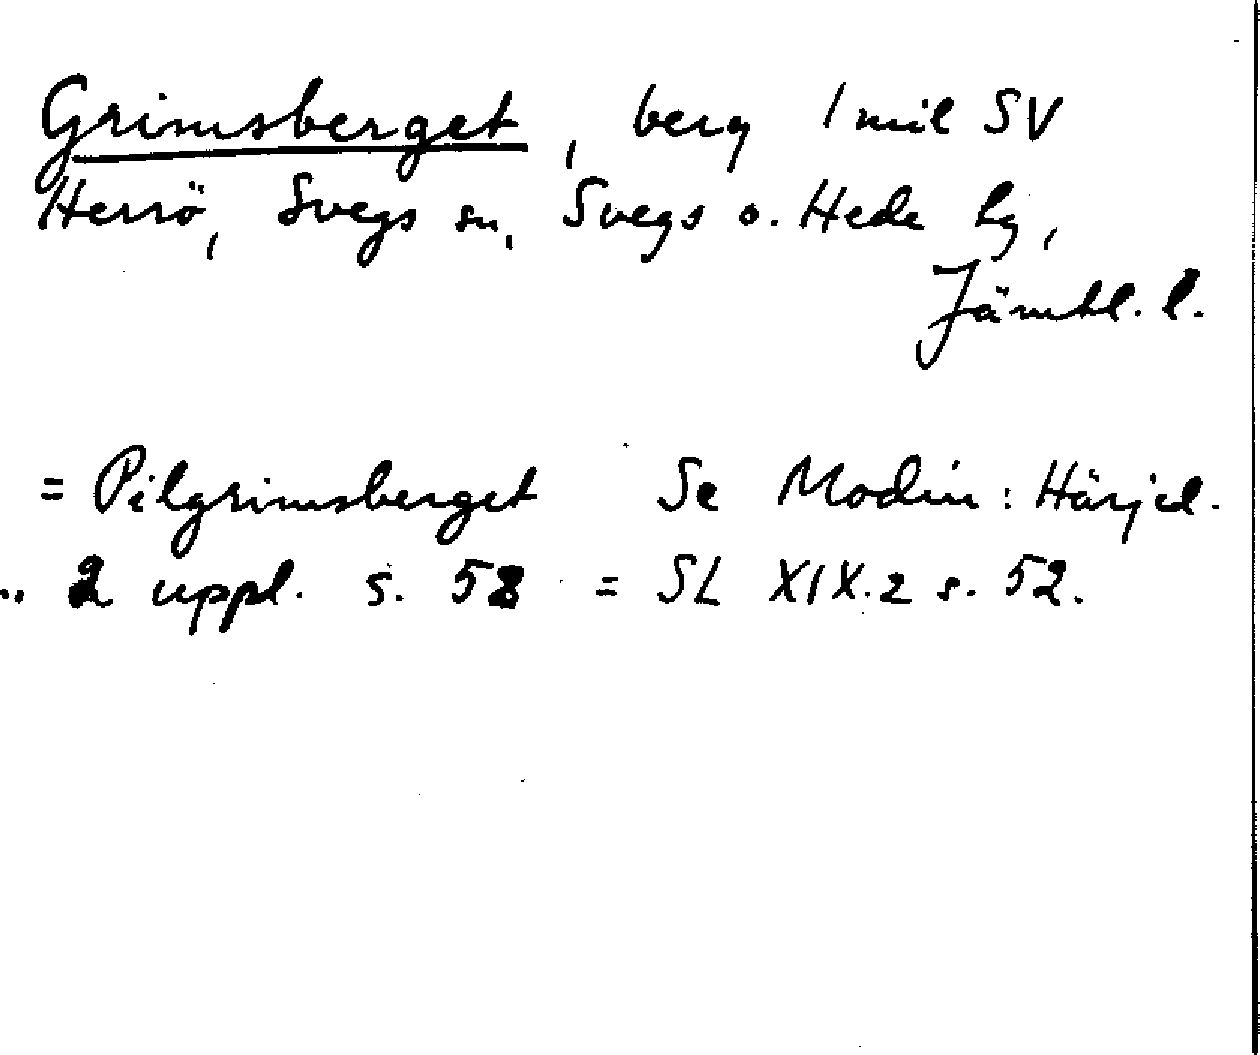 Grimsberget, berg 1 mil SV
Herrö, Svegs sn, Svegs o. Hede hg,
Jämtl. l.
= Pilgrimsberget Se Modin: Härjed.
2 uppl. s. 52 = SL XIX.2 s. 52.